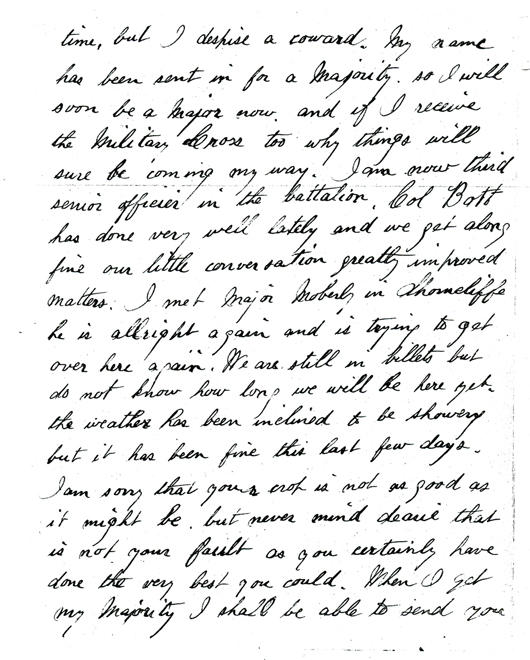 time, but I despise a coward. My name
has been sent in for a Majority. so I will
soon be a Major now. and if I receive
the Military Cross too why things will
sure be coming my way. I am now third
senior officier in the battalion. Col Bott
has done very well lately and we get along
fine our little conversation greatly improved
matters. I met Major Moberly in Shorncliffe
he is allright again and is trying to get
over here again. We are still in billets but
do not know how long we will be here yet.
the weather has been inclined to be showery
but it has been fine this last few days.
I am sorry that your crop is not as good as
it might be. but never mind dearie that
is not your fault as you certainly have
done the very best you could. When I get
my Majority I shall be able to send you